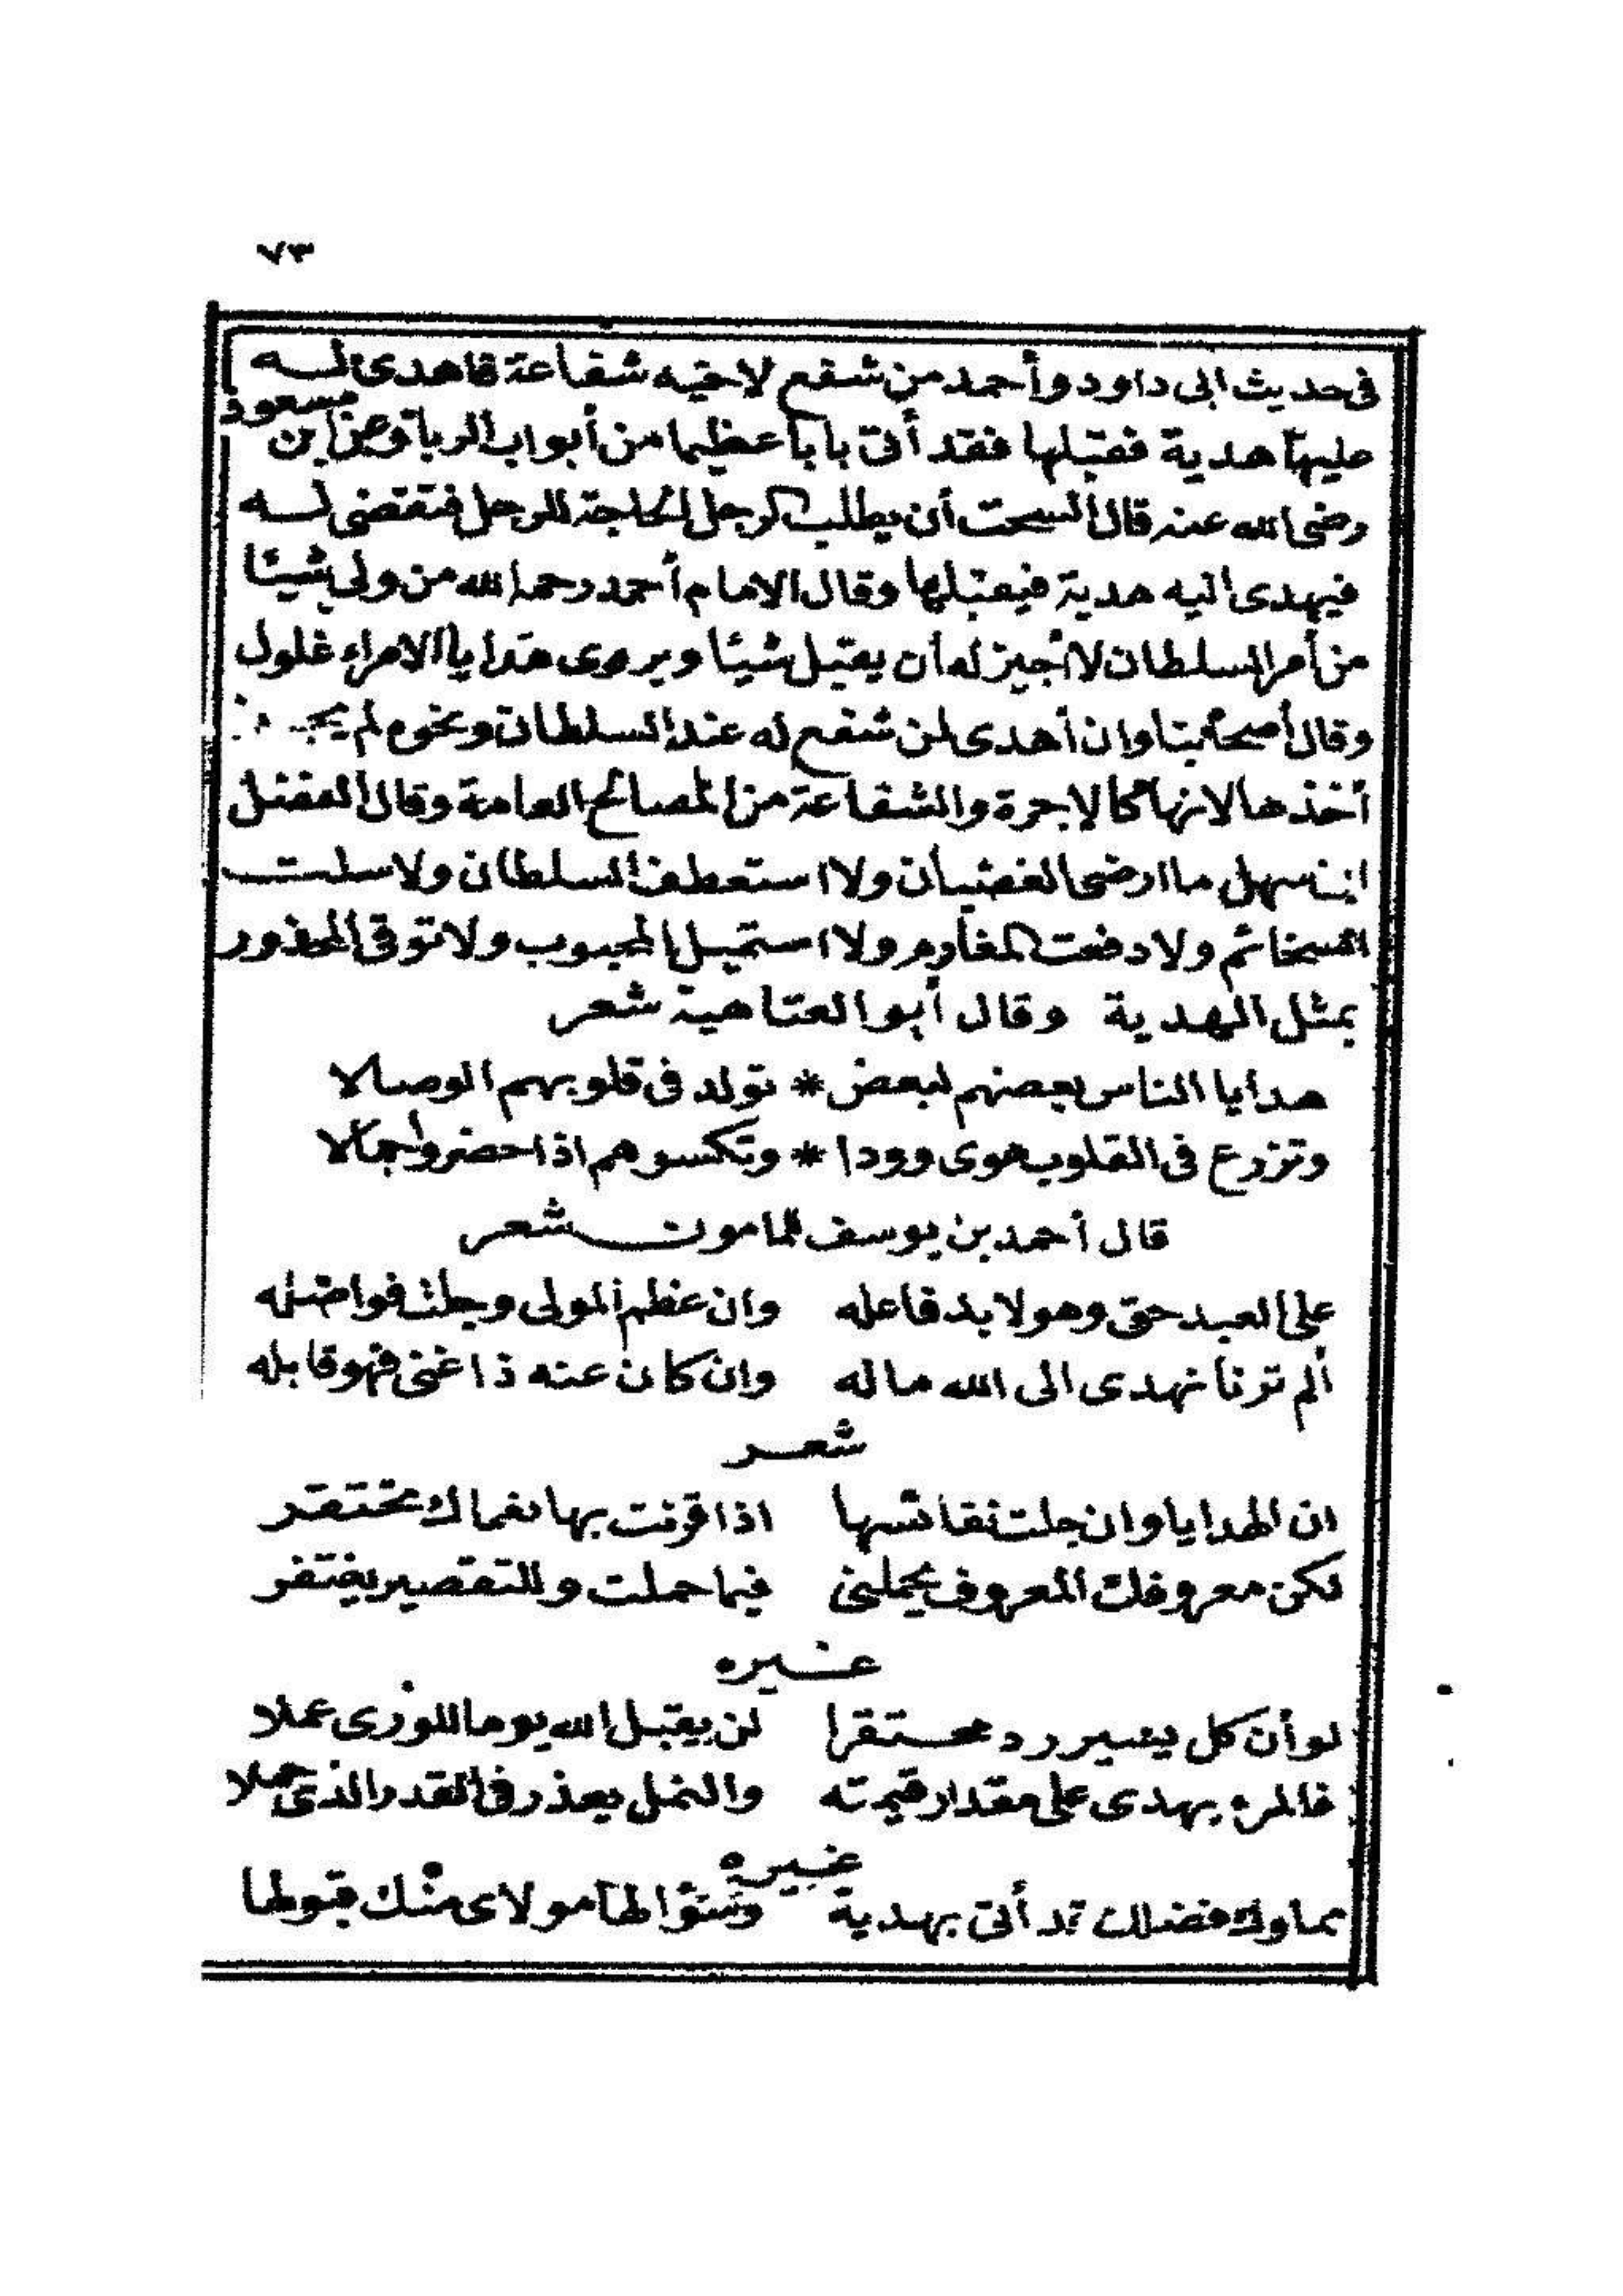 ٧٣
فى حديث ابى داود وأحمد من شفع لاخيه شفاعة فاهدى له
عليها هدية فقبلها فقد أتى بابا عظيما من أبواب الربا وعن ابن مسعود
رضى الله عنه قال السحت أن يطلب الرجل الحاجة للرجل فتقضى له
فيهدى اليه هدية فيقبلها وقال الامام أحمد رحمه الله من ولى شيئا
من أمر السلطان لا أجيز له أن يقبل شيئا ويروى هدايا الامراء غلول
وقال أصحابنا وان أهدى لمن شفع له عند السلطان ونحوه لم يجز
أخذها لانها كالاجرة والشفاعة من المصالح العامة وقال الفضل
ابن سهل ما ارضى الغضبان ولا استعطف السلطان ولا سلت
السخائم ولا دفعت المغارم ولا استميل المحبوب ولا توقى المحذور
بمثل الهدية وقال أبو العتاهية شعر
هدايا الناس بعضهم لبعض * تولد فى قلوبهم الوصالا
وتزرع فى القلوب هوى وودا * وتكسوهم اذا حضروا جمالا
قال أحمد بن يوسف للمامون شعر
على العبد حق وهو لا بد فاعله وان عظم المولى وجلت فواضله
ألم ترنا نهدى الى الله ماله وان كان عنه ذا غنى فهو قابله
شعر
ان الهدايا وان جلت نفائسها اذا قرنت بها نعماك تحتقر
لكن معروفك المعروف يحملنى فيما حملت وللتقصير يغتفر
غيره
لو أن كل يسير رد محتقرا لن يقبل الله يوما للورى عملا
فالمرء يهدى على مقدار قيمته والنمل يعذر فى القدر الذى حملا
غيره
مملوك فضلك قد أتى بهدية وسؤالها مولاى منك قبولها